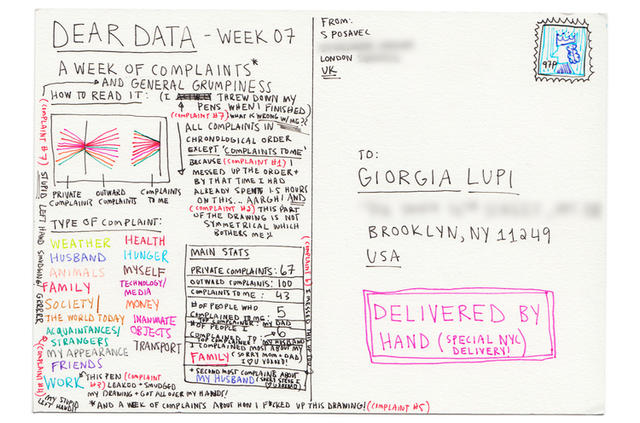 DEAR DATA - WEEK 07
A WEEK OF COMPLAINTS*
AND GENERAL GRUMPINESS
HOW TO READ IT: (I THREW DOWN MY
PENS WHEN I FINISHED)
(COMPLAINT #7) WHAT IS WRONG W/ME?!
ALL COMPLAINTS IN
CHRONOLOGICAL ORDER
EXCEPT 'COMPLAINTS TO ME'
BECAUSE (COMPLAINT #1) I
MESSED UP THE ORDER +
BY THAT TIME I HAD
ALREADY SPENT 1.5 HOURS
ON THIS... AARGH! AND
(COMPLAINT #2) THIS PART
OF THE DRAWING IS NOT
SYMMETRICAL WHICH
BOTHERS ME
PRIVATE COMPLAINTS
OUTWARD COMPLAINTS
COMPLAINTS TO ME
STUPID LEFT HAND SMUDGING!
TYPE OF COMPLAINT:
WEATHER
HUSBAND
ANIMALS
FAMILY
SOCIETY/
THE WORLD TODAY
ACQUAINTANCES/
STRANGERS
MY APPEARANCE
FRIENDS
WORK
HEALTH
HUNGER
MYSELF
TECHNOLOGY/
MEDIA
MONEY
INANIMATE
OBJECTS
TRANSPORT
MAIN STATS
PRIVATE COMPLAINTS: 67
OUTWARD COMPLAINTS: 100
COMPLAINTS TO ME: 43
# OF PEOPLE WHO
COMPLAINED TO ME: 5
TOP COMPLAINER: MY DAD
# OF PEOPLE I
COMPLAINED TO: 6
MY HUSBAND
COMPLAINED MOST ABOUT MY
FAMILY (SORRY MOM + DAD)
I ♡ YOU!
+ SECOND MOST COMPLAINTS ABOUT
MY HUSBAND
THIS PEN (COMPLAINT
#3) LEAKED + SMUDGED
MY DRAWING + GOT ALL OVER MY HANDS!
(COMPLAINT #4)
MY STUPID
LEFT HAND!
*AND A WEEK OF COMPLAINTS ABOUT HOW I F*CKED UP THIS DRAWING! (COMPLAINT #5)
FROM:
S POSAVEC
LONDON
UK
97P
TO:
GIORGIA LUPI
BROOKLYN, NY 11249
USA
DELIVERED BY
HAND (SPECIAL NYC
DELIVERY!)